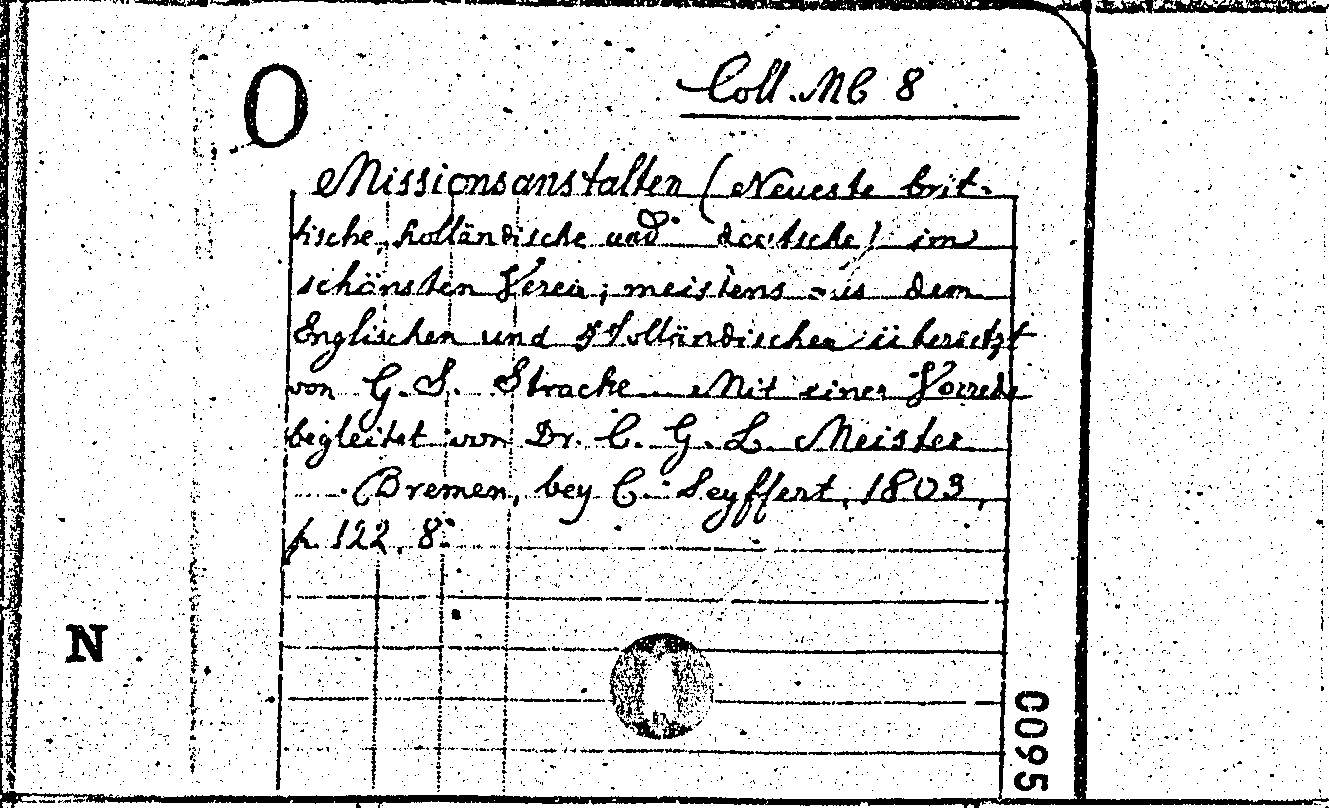 O
Coll. MC 8
Missionsanstalten (Neueste brit-
tische, holländische und deutsche) im
schönsten Verein; meistens aus dem
Englischen und Holländischen übersetzt
von G. S. Stracke. Mit einer Vorrede
begleitet von Dr. C. G. L. Meister
Bremen, bey C. Seyffert, 1803,
p. 122, 8°
N
0095